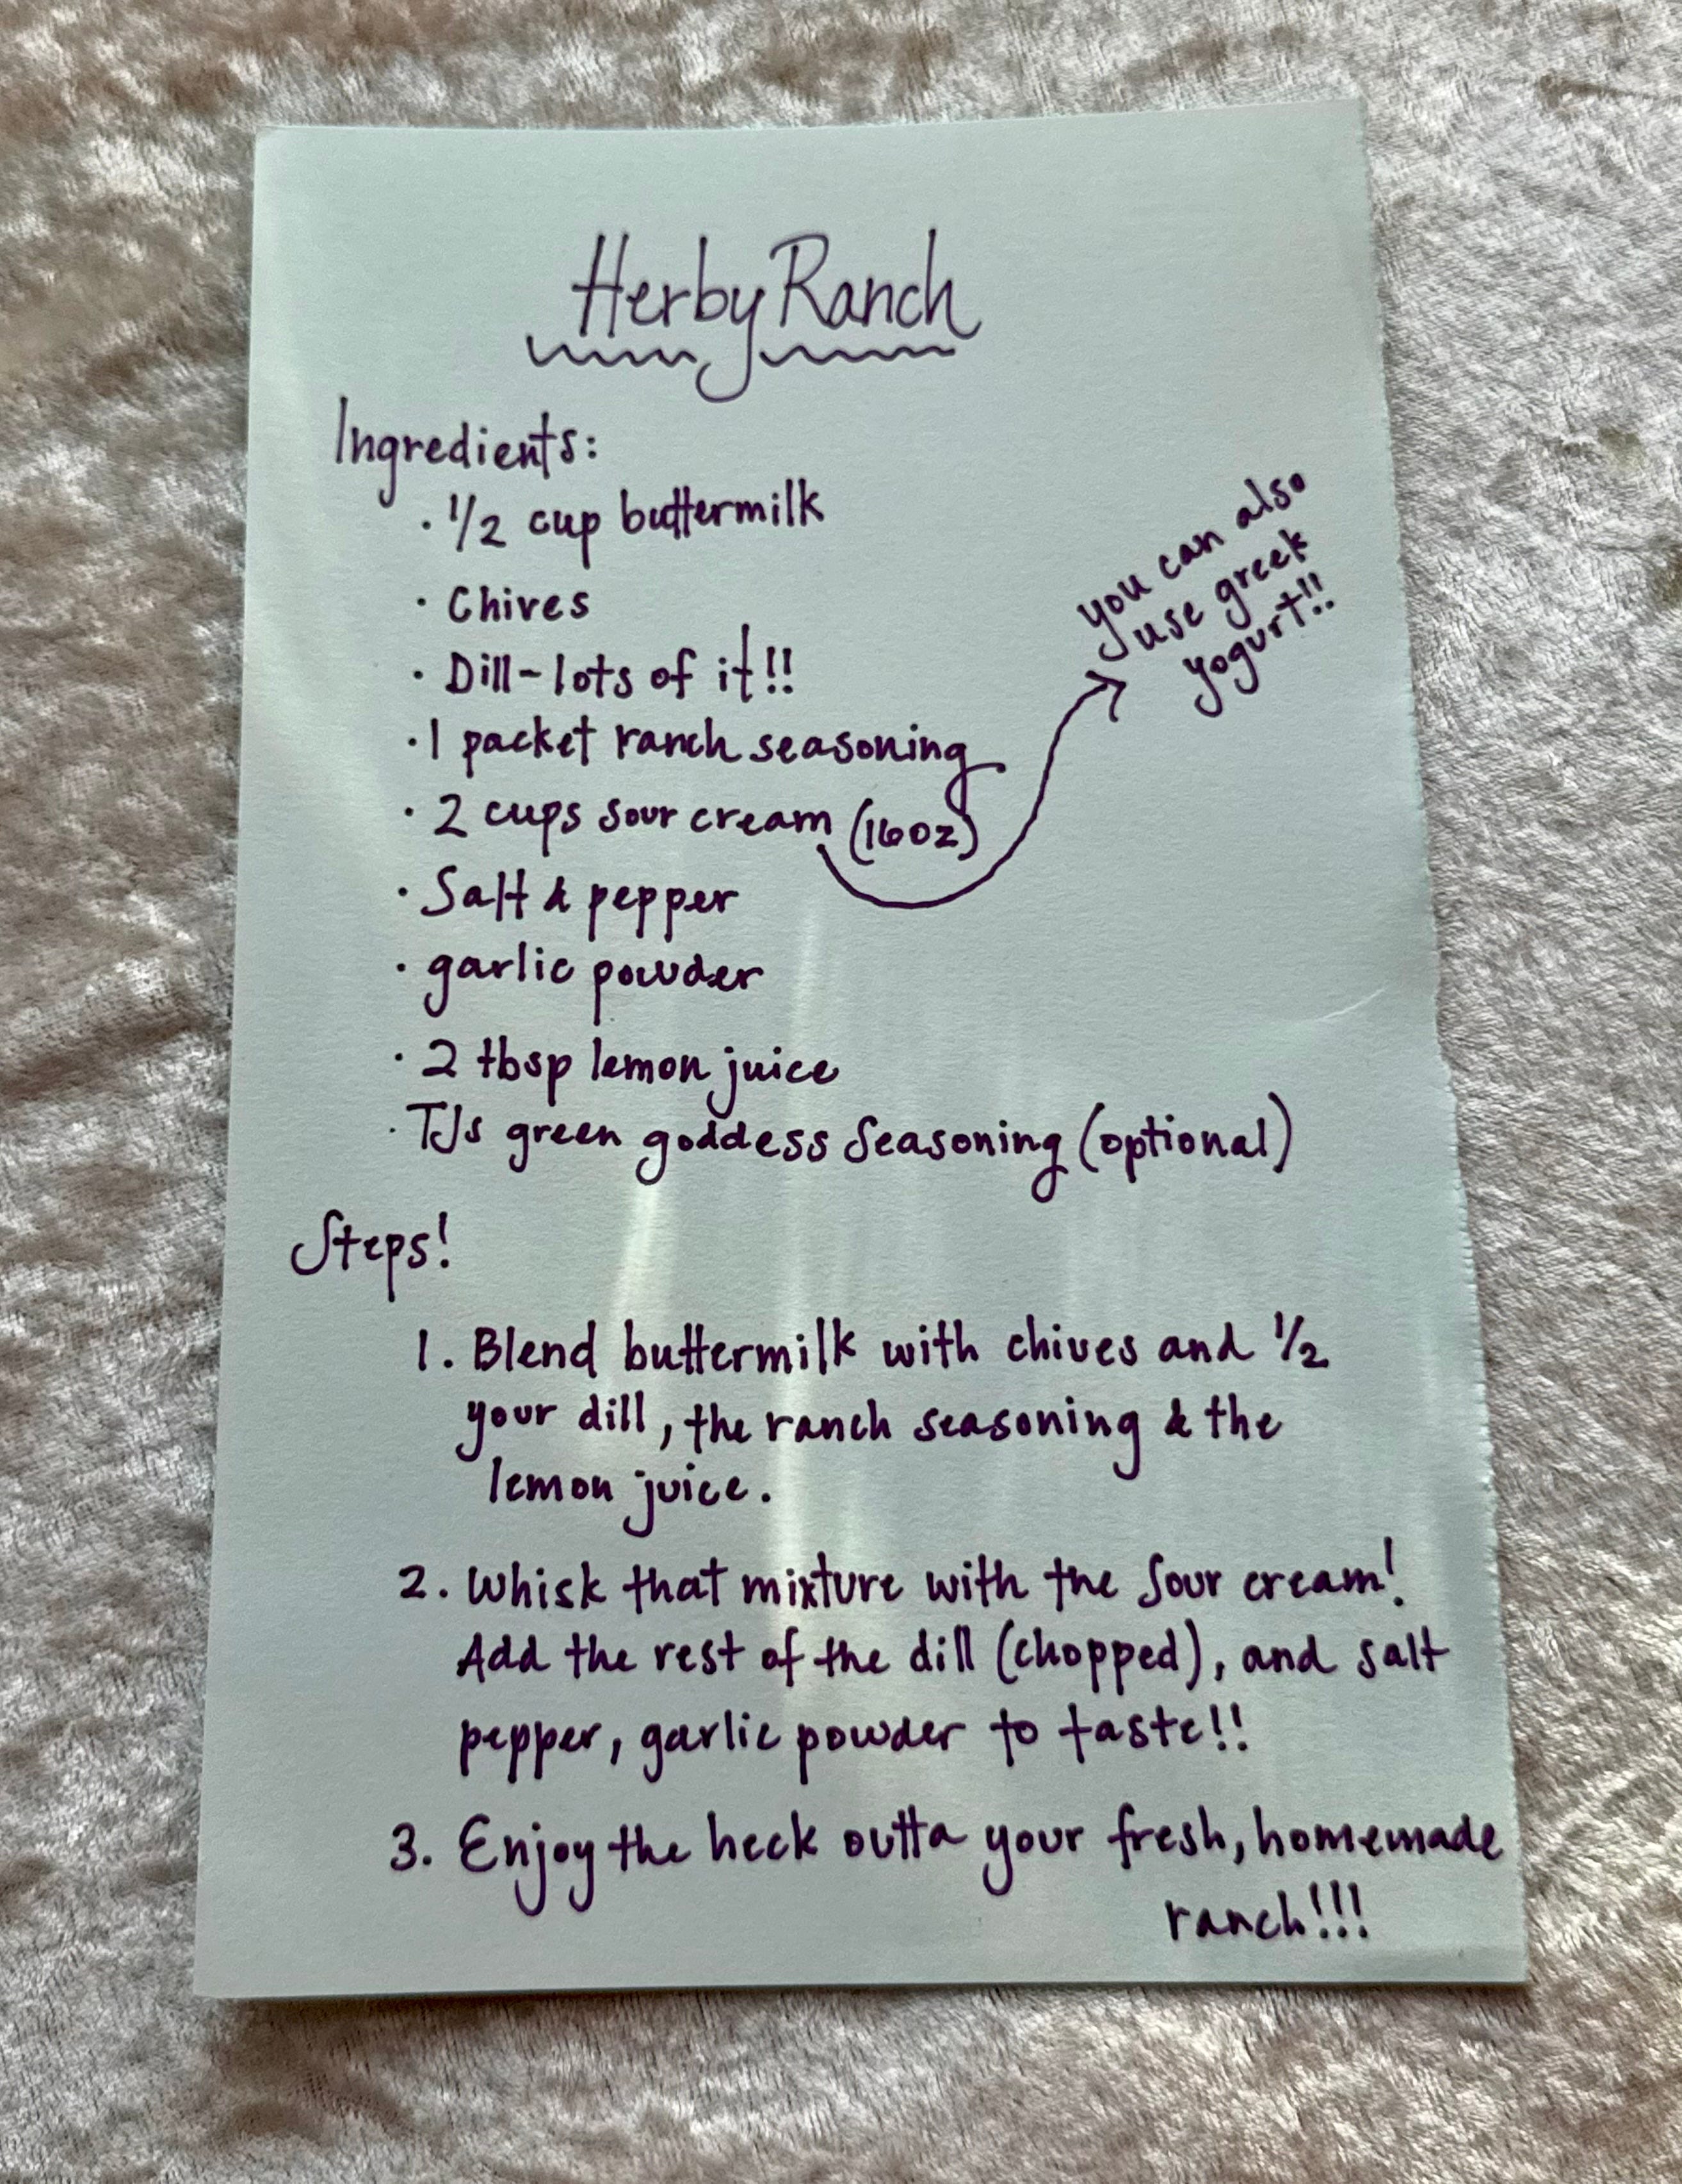 Herby Ranch
Ingredients:
· 1/2 cup buttermilk
· Chives
· Dill - lots of it!!
· 1 packet ranch seasoning
· 2 cups sour cream (16oz)
you can also
use greek
yogurt!!
· Salt & pepper
· garlic powder
· 2 tbsp lemon juice
· TJs green goddess seasoning (optional)
Steps!
1. Blend buttermilk with chives and 1/2
your dill, the ranch seasoning & the
lemon juice.
2. Whisk that mixture with the sour cream!
Add the rest of the dill (chopped), and salt
pepper, garlic powder to taste!!
3. Enjoy the heck outta your fresh, homemade
ranch!!!